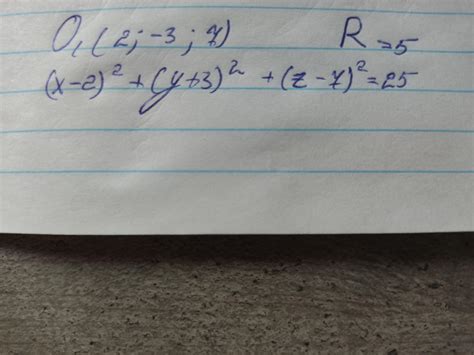 O₁(2; -3; 7) R=5
(x-2)² + (y+3)² + (z-7)² = 25